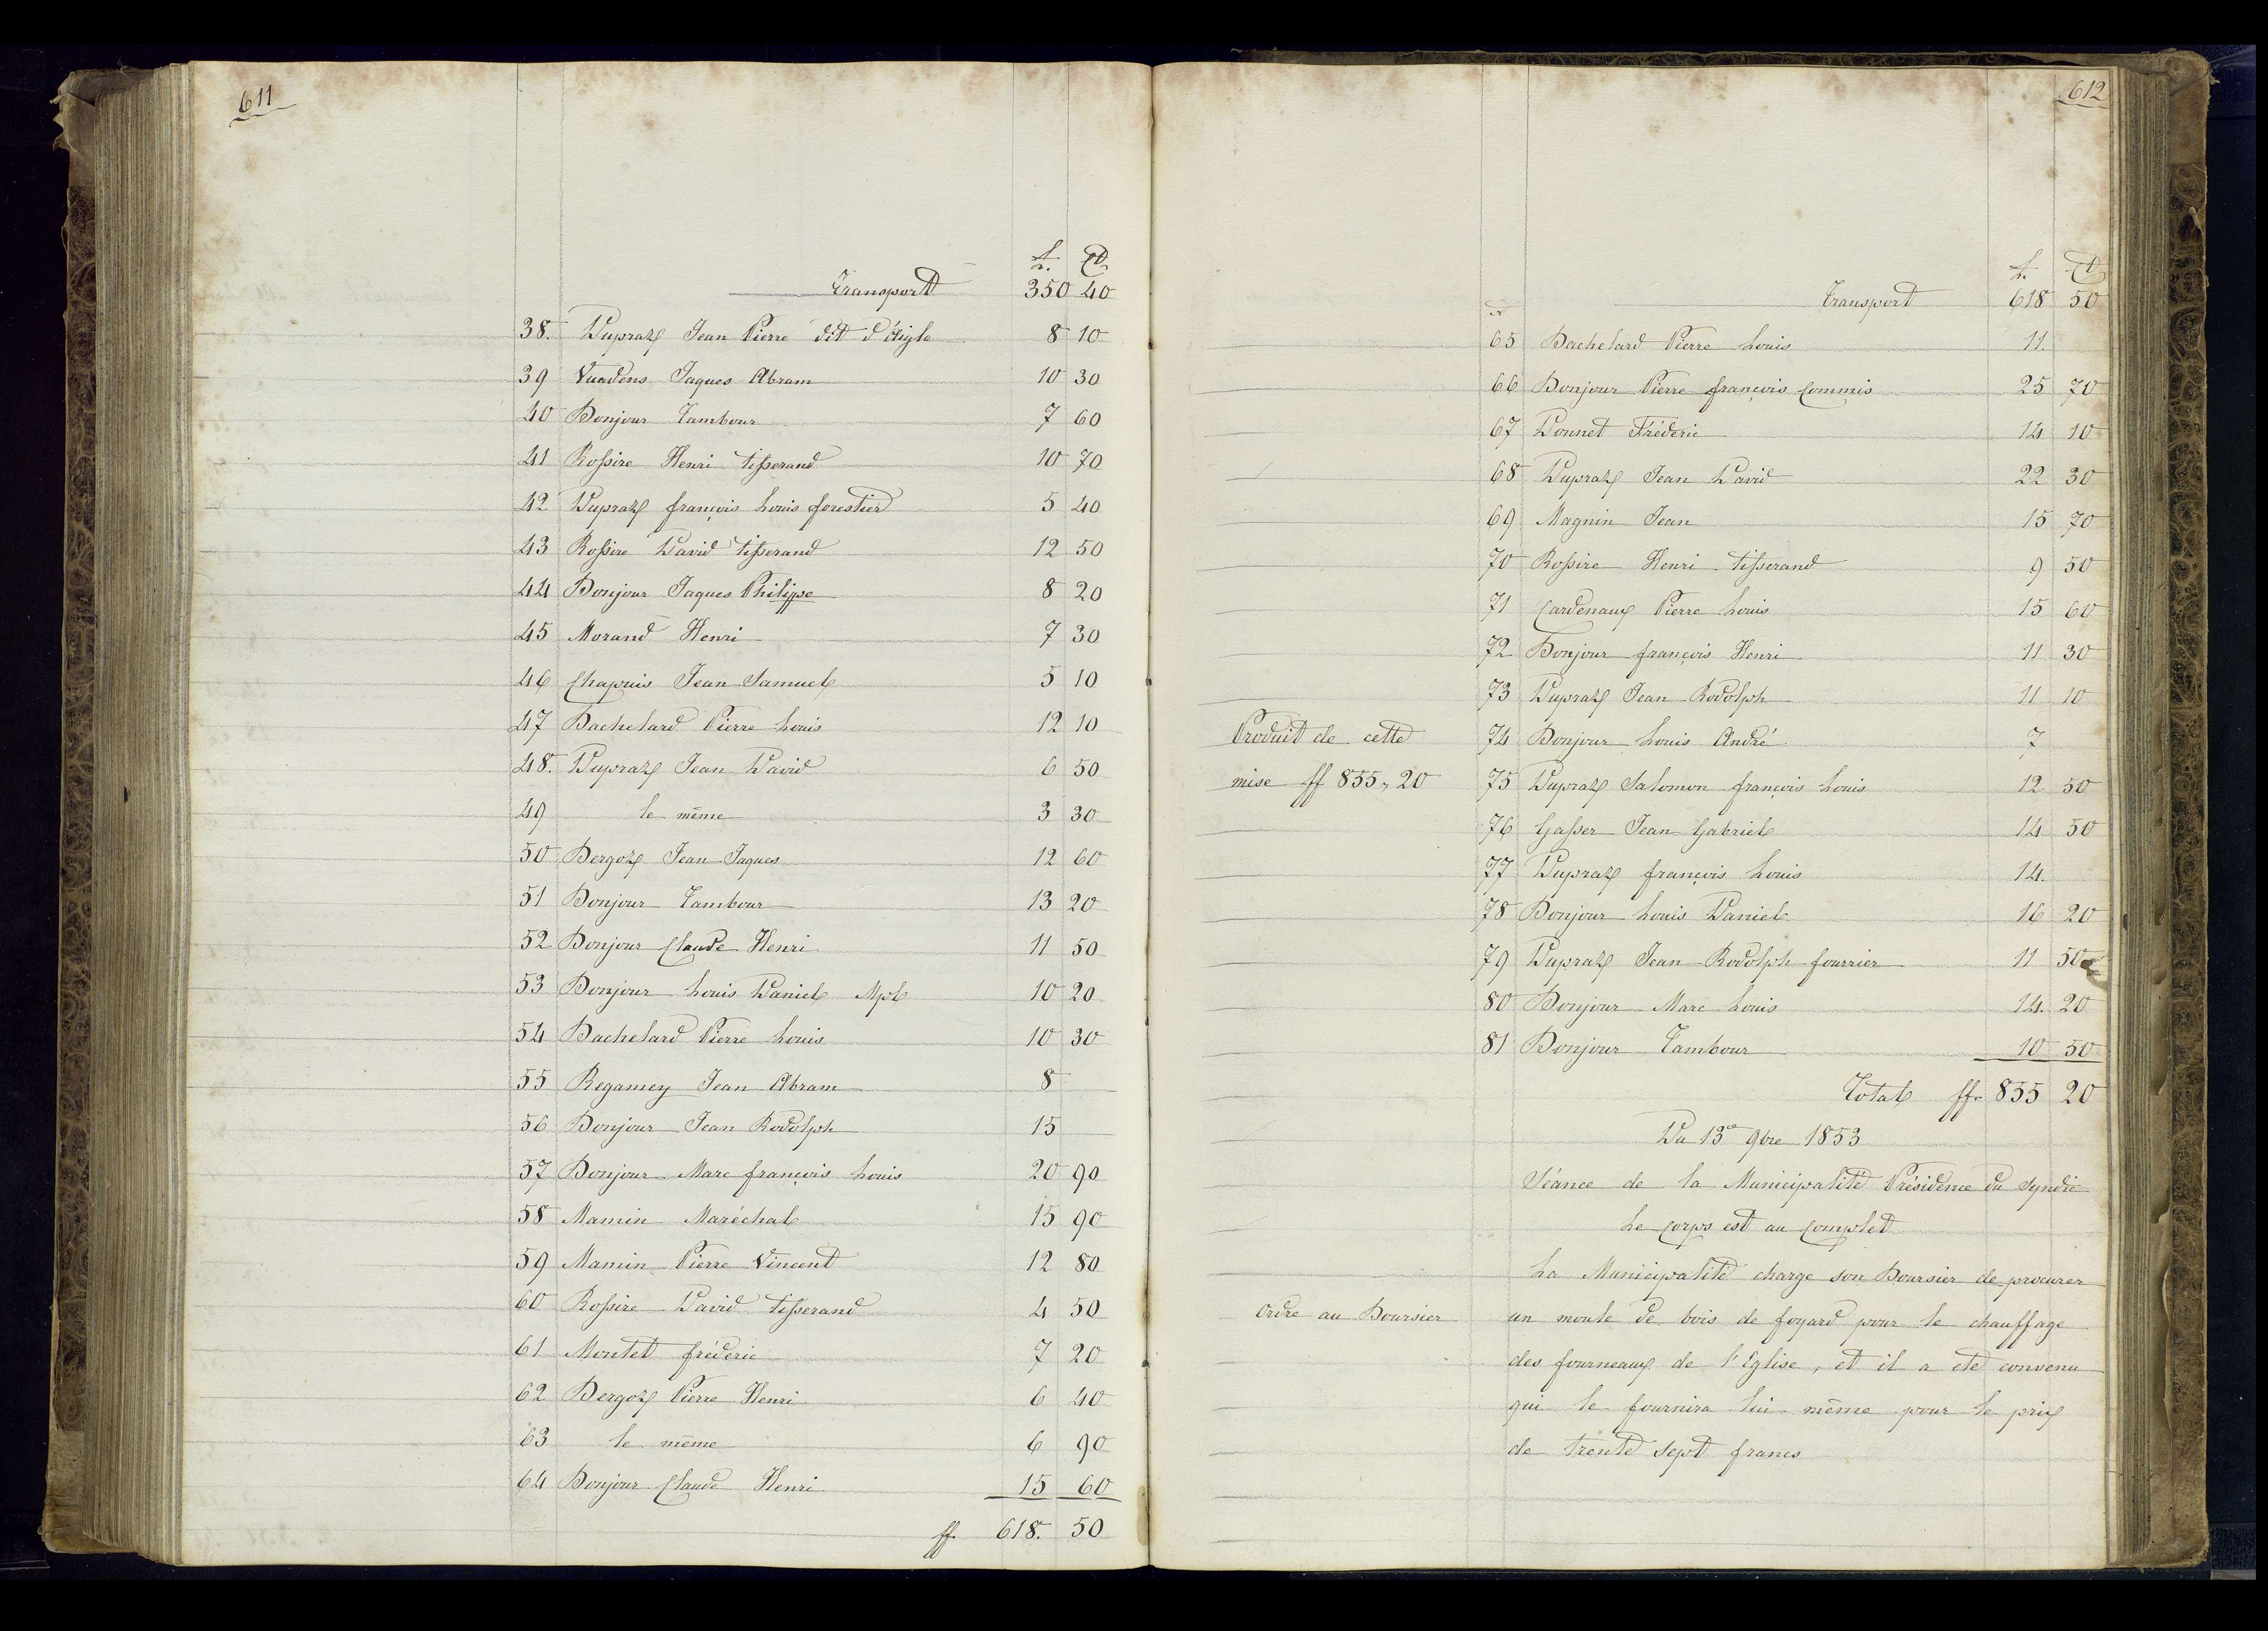 611
fr. Ct
Transport 350 40
38. Dupraz Jean Pierre dit d'Aigle 8 10
39 Vuadens Jaques Abram 10 30
40 Bonjour Tambour 7 60
41 Rossire Henri tisserand 10 70
42 Dupraz françois Louis forestier 5 40
43 Rossire David tisserand 12 50
44 Bonjour Jaques Philippe 8 20
45 Morand Henri 7 30
46 Chapuis Jean Samuel 5 10
47 Bachelard Pierre Louis 12 10
48. Dupraz Jean David 6 50
49 le même 3 30
50 Bergoz Jean Jaques 12 60
51 Bonjour Tambour 13 20
52 Bonjour Claude Henri 11 50
53 Bonjour Louis Daniel Mpl 10 20
54 Bachelard Pierre Louis 10 30
55 Regamey Jean Abram 8
56 Bonjour Jean Rodolph 15
57 Bonjour Marc françois Louis 20 90
58 Mamin Maréchal 15 90
59 Mamin Pierre Vincent 12 80
60 Rossire David tisserand 4 50
61 Montet fréderic 7 20
62 Bergoz Pierre Henri 6 40
63 le même 6 90
64 Bonjour Claude Henri 15 60
ff. 618. 50
612
fr. Ct
Transport 618 50
65 Bachelard Pierre Louis 11.
66 Bonjour Pierre françois Commis 25 70
67 Donnet Fréderic 14 10
68 Dupraz Jean David 22 30
69 Magnin Jean 15 70
70 Rossire Henri tisserand 9 50
71 Cardenaux Pierre Louis 15 60
72 Bonjour françois Henri 11 30
73 Dupraz Jean Rodolph 11 10
Produit de cette
74 Bonjour Louis André 7
mise ff 855 " 20
75 Dupraz Salomon françois Louis 12 50
76 Gasser Jean Gabriel 14 50
77 Dupraz françois Louis 14.
78 Bonjour Louis Daniel 16 20
79 Dupraz Jean Rodolph fourrier 11 50
80 Bonjour Marc Louis 14. 20
81 Bonjour Tambour 10 50
Total ff. 855 20
Du 13e 9bre 1853
Séance de la Municipalité Présidence du Syndic
Le Corps est au Complet
La Municipalité charge son Boursier de procurer
Ordre au Boursier
un moule de bois de foyard pour le chauffage
des fourneaux de l'Eglise, et il a eté convenu
qui le fournira lui même pour le prix
de trente sept francs